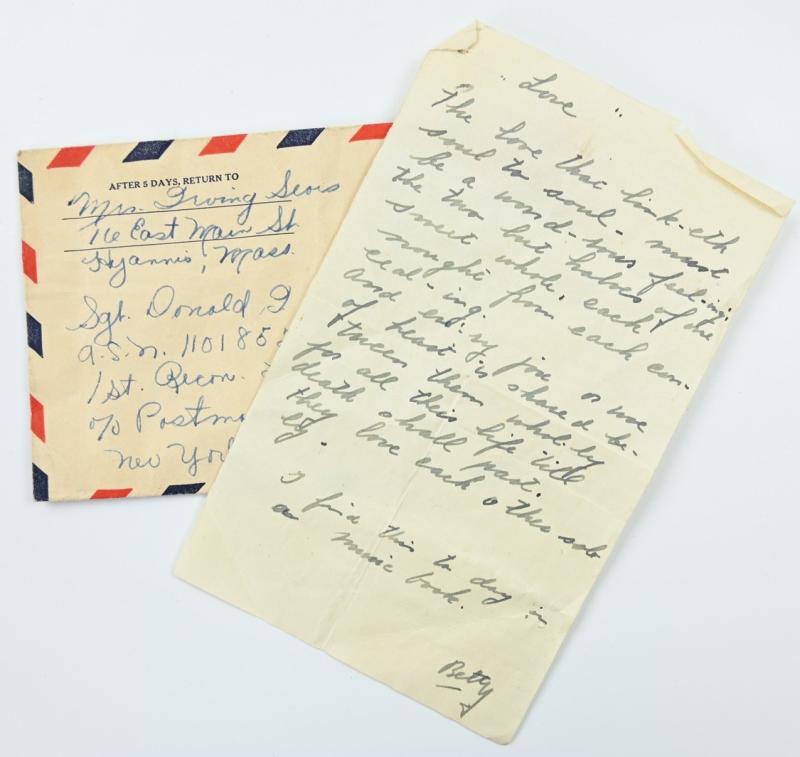 AFTER 5 DAYS, RETURN TO
Mrs. Irving Sears
76 East Main St.
Hyannis, Mass.
Sgt. Donald
a.s.n. 110185
1st. Recon.
c/o Postma
New York
"Love"
The love that link-eth
soul to soul - must
be a wond-rous feel-ing.
the two but halves of the
sweet whole, each
nought from each con-
ceal-ing.
and ev'ry joy or woe
of heart is shared be-
tween them whol-ly
for all their life till
death shall part.
they love each other sole
ly.
I find this to day in
a music book.
Betty